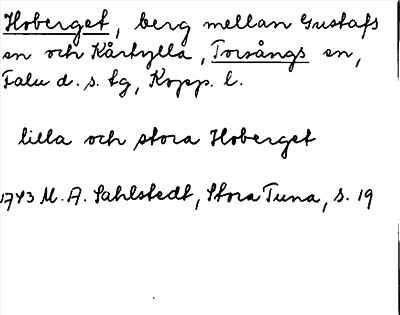 Hoberget, berg mellan Gustafs
sn och Kårtylla, Torsångs sn,
Falu d. s. tg, Kopp. l.
lilla och stora Hoberget
1743 M. A. Sahlstedt, Stora Tuna, s. 19